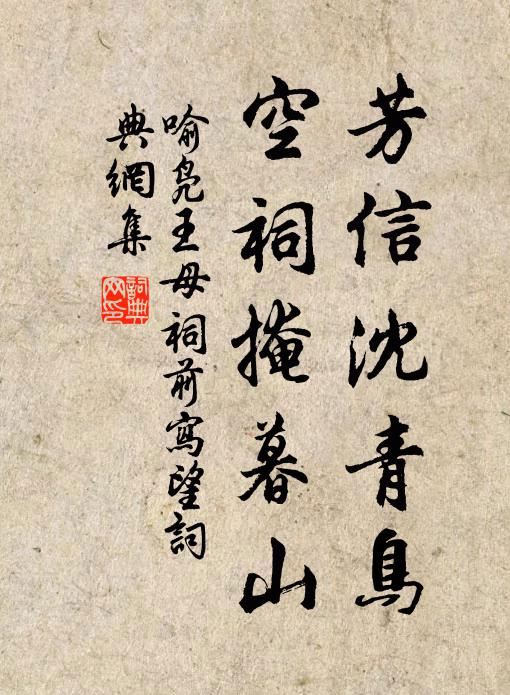 芳信沈青鳥
空祠掩暮山
喻鳧王母祠前寫望詞
典網集
詞典網印